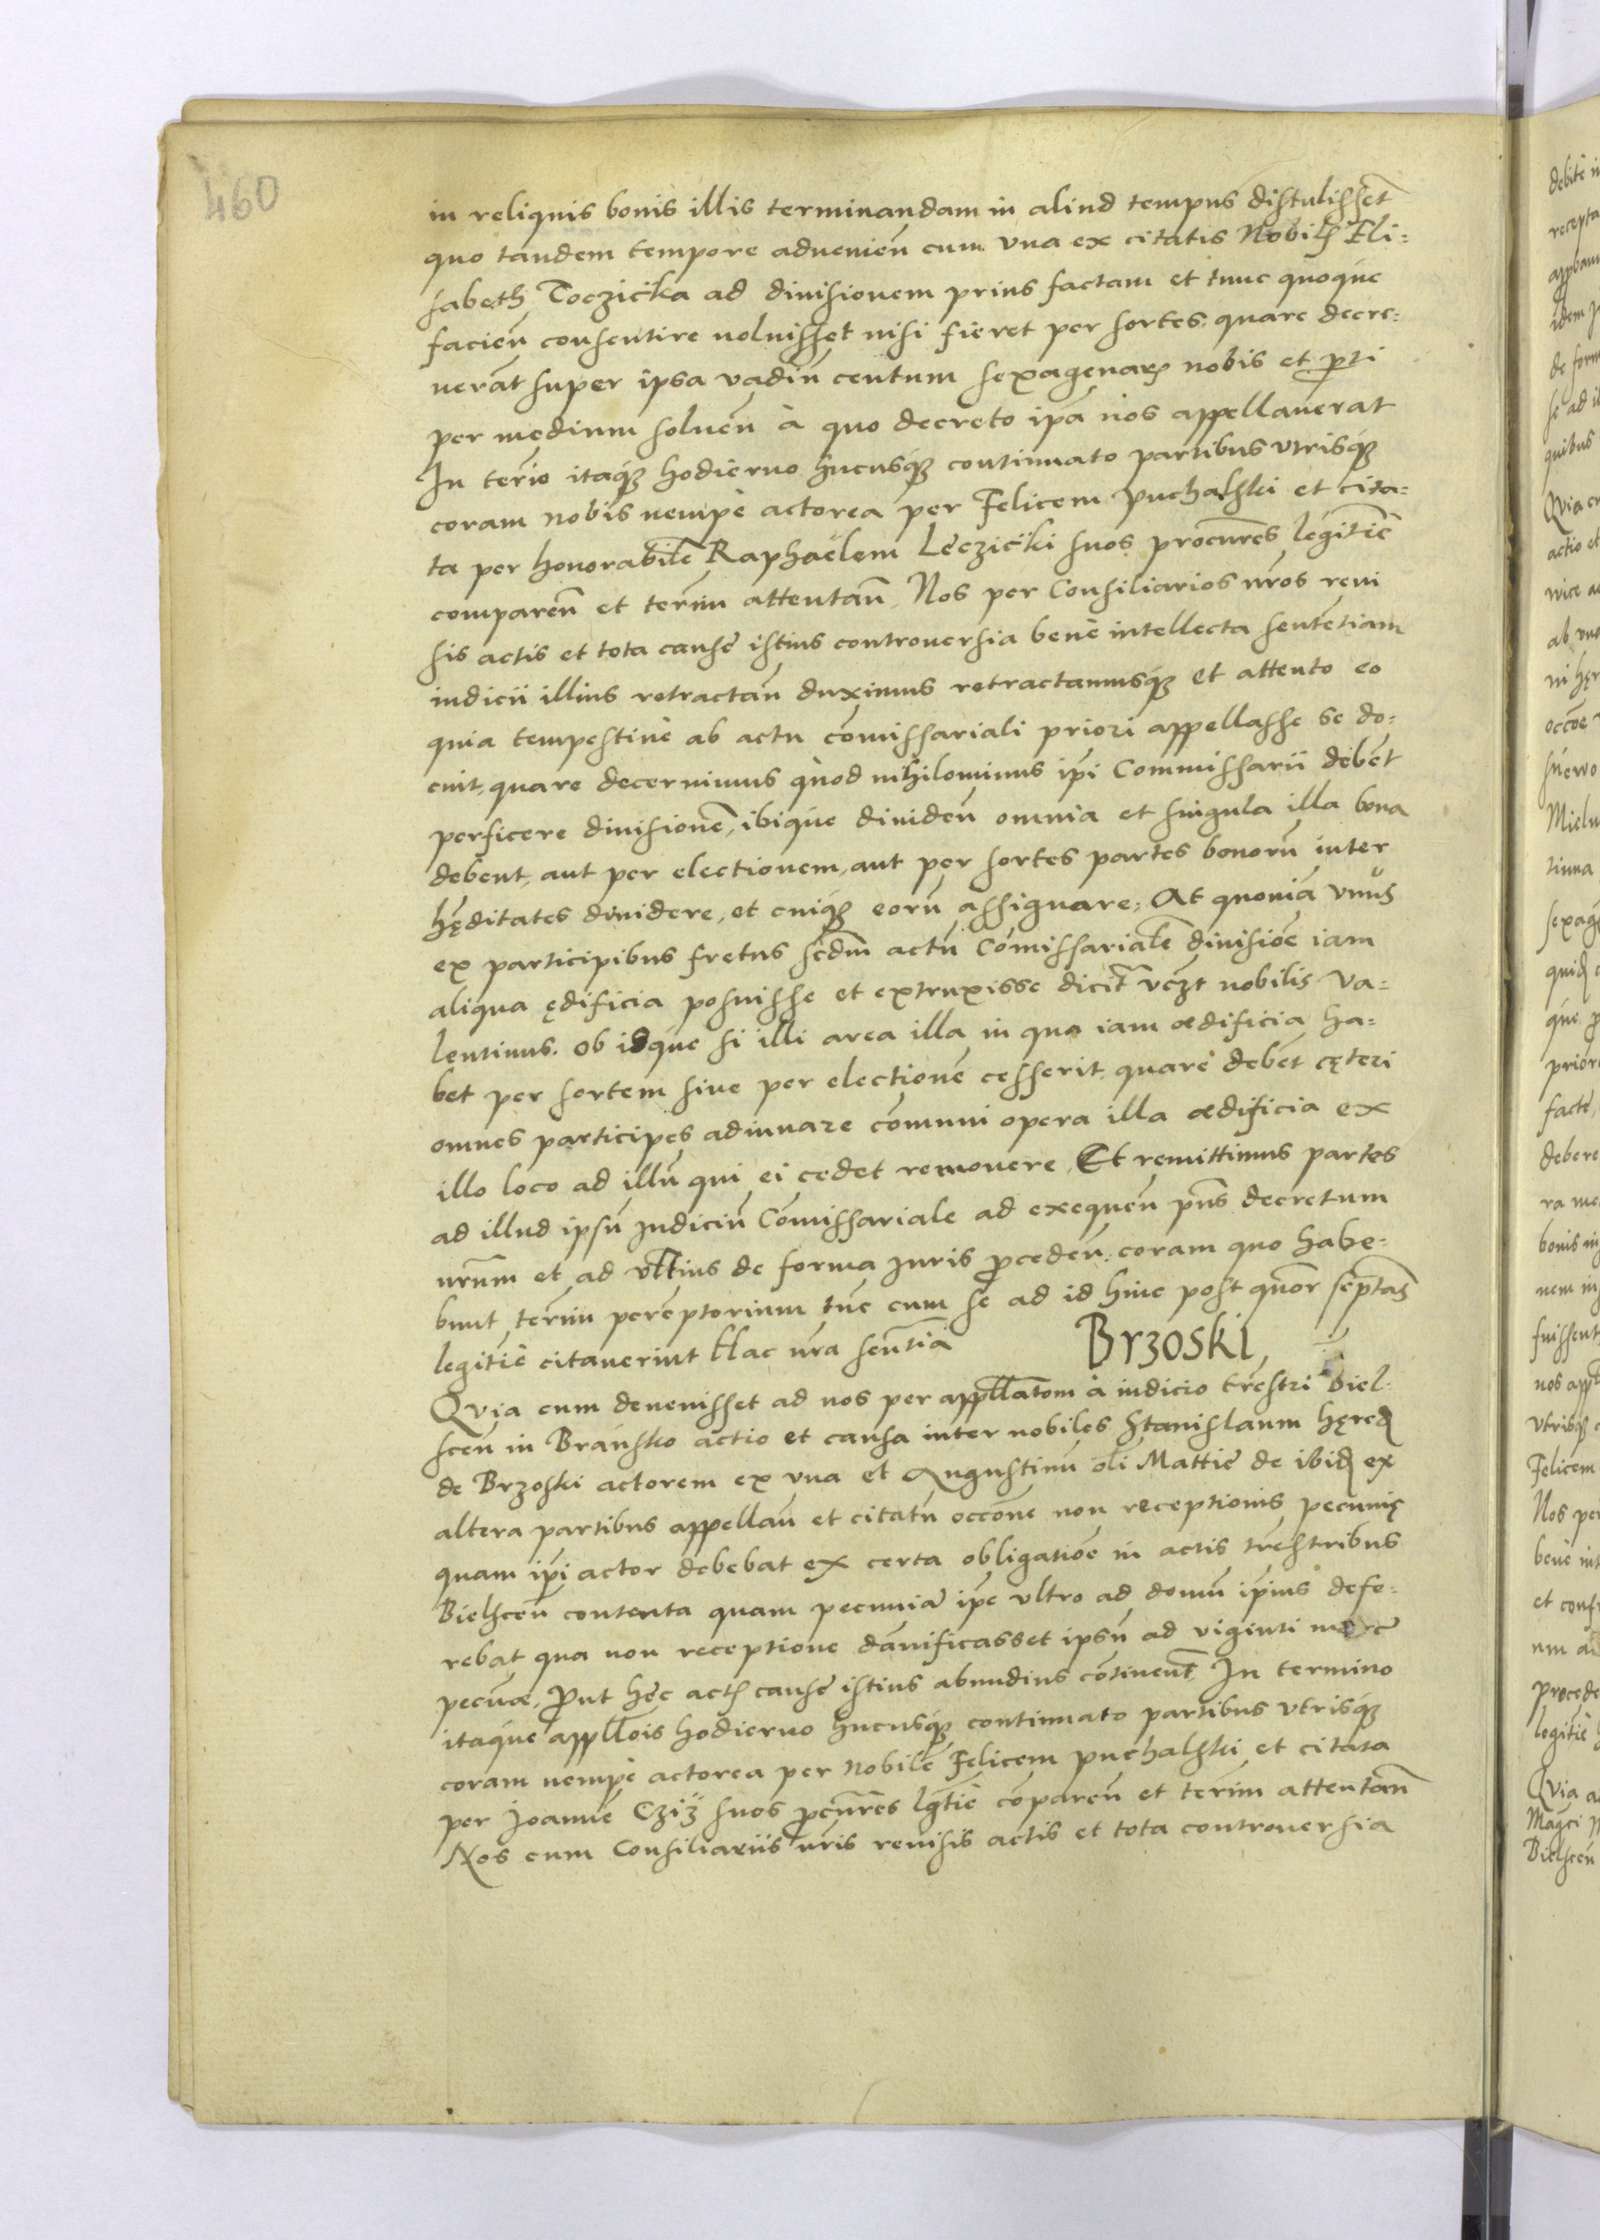 460
in reliquis bonis illis terminandam in aliud tempus distulissēt
quo tandem tempore aduenieñ cum vna ex citatis Nobilẜ Eli-
sabeth Toczicka ad diuisionem prius factam et tunc quoque
facieñ consentire noluisset nisi fieret per sortes: quare decre-
uerāt super ipsa vadiū centum sexagenarꝝ nobis et parti
per medium solueñ à quo decreto ipa nos appellauerat
In terīo itaqꝫ hodierno hucusqꝫ continuato partibus vtrisqꝫ
coram nobis nempe actorea per Felicem Puchalski et cita-
ta per honorabilē Raphaëlem Leczicki suos procur̄es legitimē
compareñ et terīm attentañ, Nos per Consiliarios nr̄os reui
sis actis et tota causę istius controuersia bene intellecta sententiam
iudicii illius retractañ duximus retractamusqꝫ et attento eo
quia tempestiue ab actu com̄issariali priori appellasse se do-
cuit, quare decernimus quod nihilominus ipi Commissarii debēt
perficere diuisionē, ibique diuideñ omnia et singula illa bona
debent, aut per electionem, aut per sortes partes bonorū inter
hęditates diuidere, et cuiqꝫ eorū assignare, At quoniā vnus
ex participibus fretus scdm̄ actū Com̄issarialē diuisiōe iam
aliqua ędificia posuisse et extruxisse dicit̄ vcꝫt nobilis Va-
lentinus. ob idque si illi area illa in qua iam ædificia ha-
bet per sortem siue per electionē cesserit, quare debēt cęteri
omnes participes adiuuare com̄uni opera illa ædificia ex
illo loco ad illū qui ei cedet remouere, Et remittimus partes
ad illud ipsū Iudiciū Com̄issariale ad exequeñ pn̄s decretum
nr̄um et ad vlt̄ius de forma iuris procedeñ: coram quo habe-
bunt terīm peremptorium tūc cum se ad id hinc post quōr septās
legitīe citauerint Hac nr̄a sentīa
Brzoski
Qvia cum deuenisset ad nos per appllatōm à iudicio trēstri Biel-
sceñ in Bransko actio et causa inter nobiles Stanislaum hęred
de Brzoski actorem ex vna et Augustinū oli Mattię de ibid ex
altera partibus appellañ et citatū occōne non receptionis pecunię
quam ipi actor debebat ex certa obligatiōe in actis trēstribus
Bielsceñ contenta quam pecuniā ipe vltro ad domū ipius defe-
rebat qua non receptione dānificasset ipsū ad viginti marc̄
pecūæ, Prout hęc actẜ causę istius abundius cōtinent̄ In termino
itaque appllōis hodierno hucusqꝫ continuato partibus vtrisqꝫ
coram nempe actorea per Nobilē Felicem Puchalski et citata
per Joannē Cziż suos procur̄es lgtīe cōpareñ et terīm attentañ
Nos cum Consiliariis nr̄is reuisis actis et tota controuersia